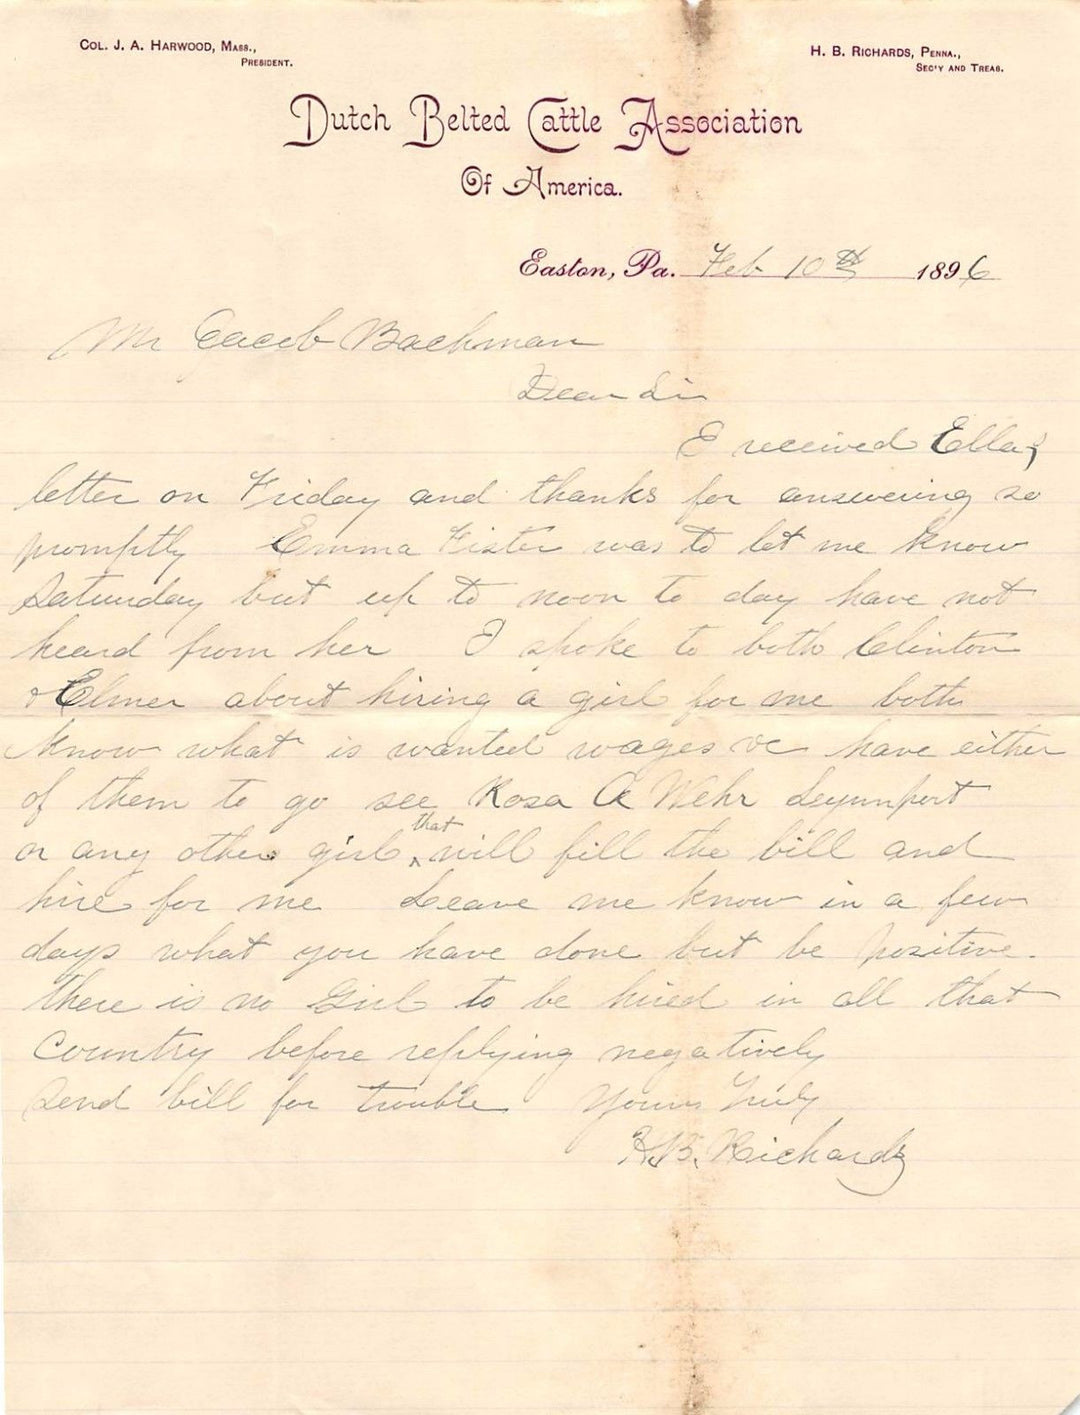 COL. J. A. HARWOOD, MASS.,
PRESIDENT.
H. B. RICHARDS, PENNA.,
SEC'Y AND TREAS.
Dutch Belted Cattle Association
Of America.
Easton, Pa. Feb 10th 1896
Mr Jacob Bachman
Dear Sir
I received Ellas
letter on Friday and thanks for answering so
promptly Emma Fister was to let me know
Saturday but up to noon to day have not
heard from her I spoke to both Clinton
& Elmer about hiring a girl for me both
know what is wanted wages &c have either
of them to go see Rosa A Wehr
or any other girl that will fill the bill and
hire for me Leave me know in a few
days what you have done but be positive.
there is no Girl to be hired in all that
Country before replying negatively
Send bill for trouble Yours Truly
H.B. Richards